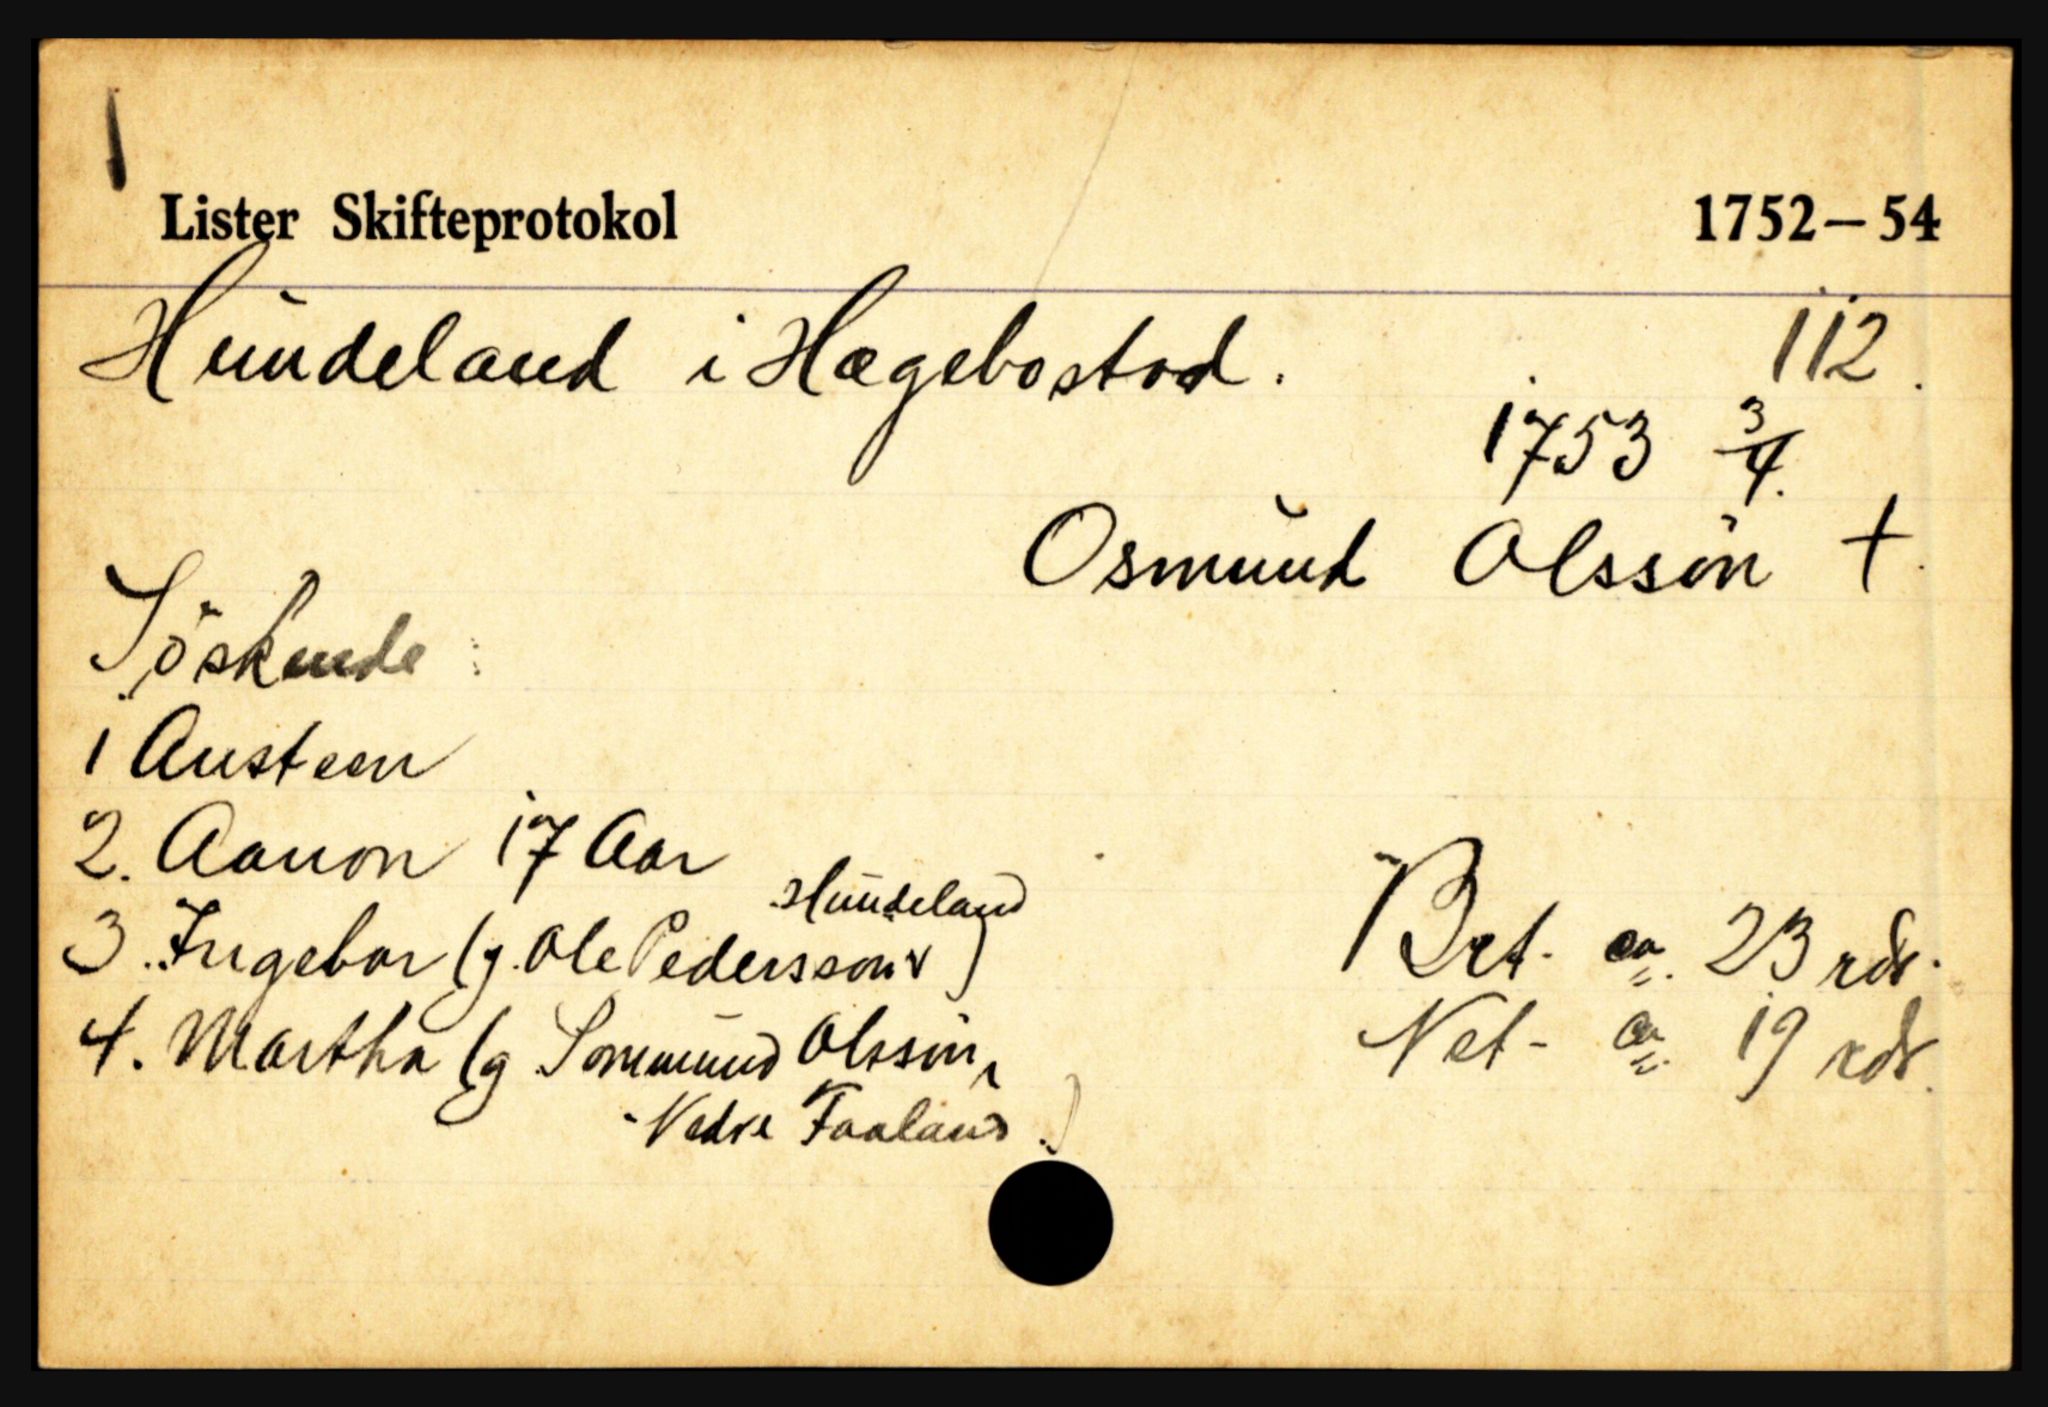 1
Lister Skifteprotokol 1752-54
Hundeland i Hægebostad. 112.
1753 3/4.
Osmund Olsson †.
Söskende:
1 Austeen
2. Aanon 17 Aar
3. Ingebor (g. Ole Pederssön Hundeland)
4. Martha (g. Sommund Olssön,
Nedre Faaland.)
Brt. ca. 23 rdr.
Net- ca. 19 rdr.